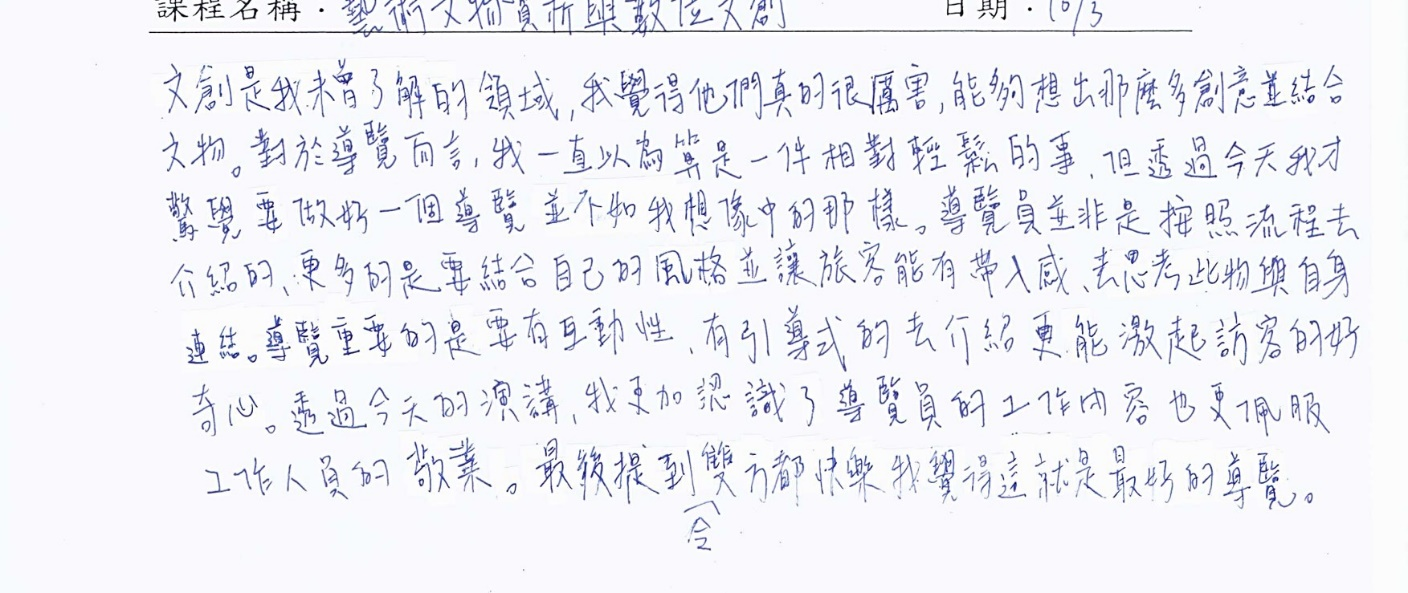 課程名稱：藝術文物賞析與數位文創 日期：10/3
文創是我未曾了解的領域，我覺得他們真的很厲害，能夠想出那麼多創意並結合
文物。對於導覽而言，我一直以為算是一件相對輕鬆的事，但透過今天我才
驚覺要做好一個導覽並不如我想像中的那樣。導覽員並非是按照流程去
介紹的、更多的是要結合自己的風格並讓旅客能有帶入感、去思考此物與自身
連結。導覽重要的是要有互動性、有引導式的去介紹更能激起訪客的好
奇心。透過今天的演講，我更加認識了導覽員的工作內容也更佩服
工作人員的敬業。最後提到雙方都快樂我覺得這就是最好的導覽。
令